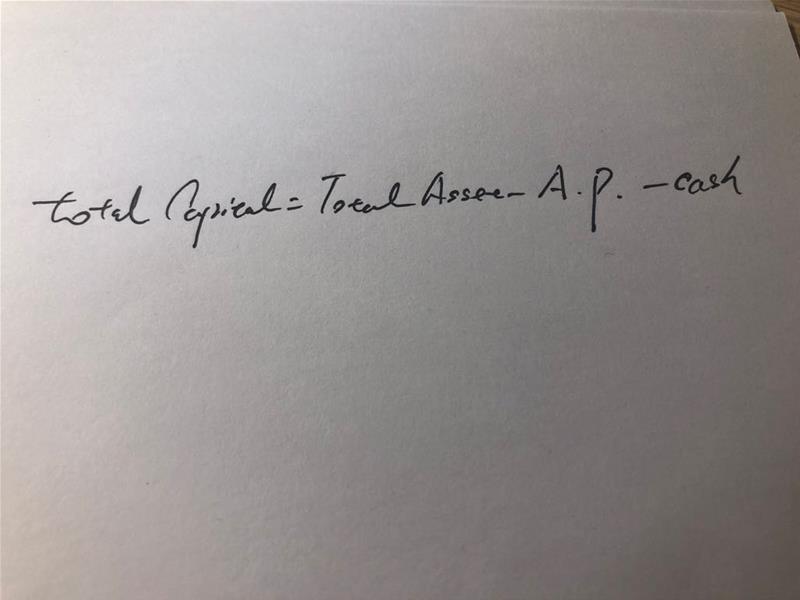 total Capital = Total Asset - A.P. - cash